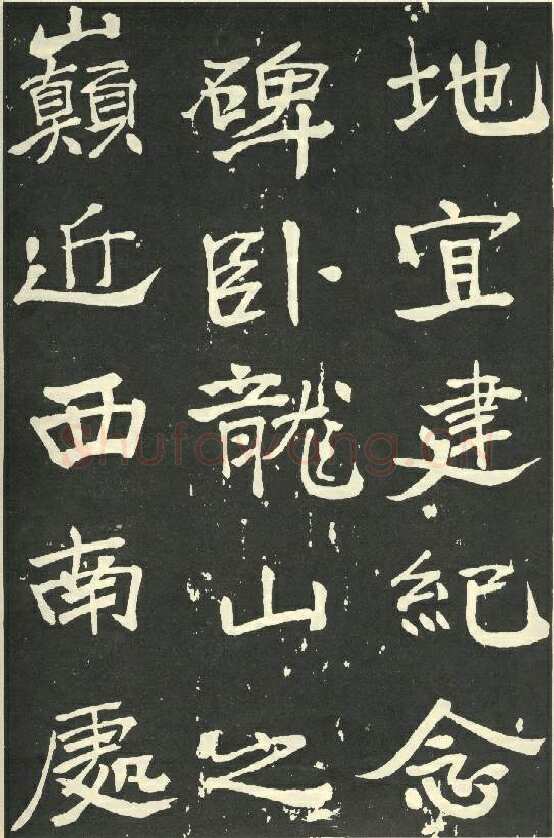 地宜建紀念
碑卧龍山之
巔近西南處
Shufawang.CN